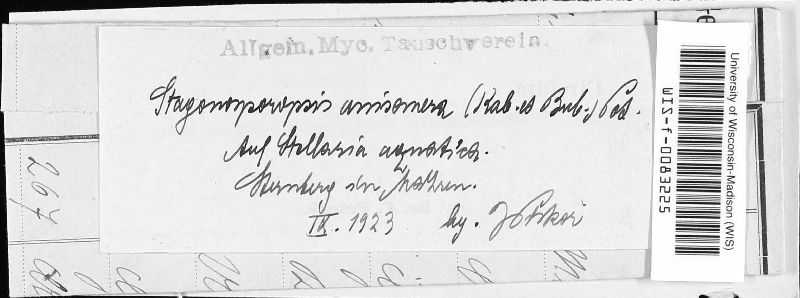 Allgem. Myc. Tauschverein.
Stagonosporopsis anisomera (Kab. et Bub.) Pet.
Auf Stellaria aquatica.
Sternberg in Mähren.
IX. 1923 lg. J. Piskoř
267
University of Wisconsin-Madison (WIS)
WIS-f-0083225